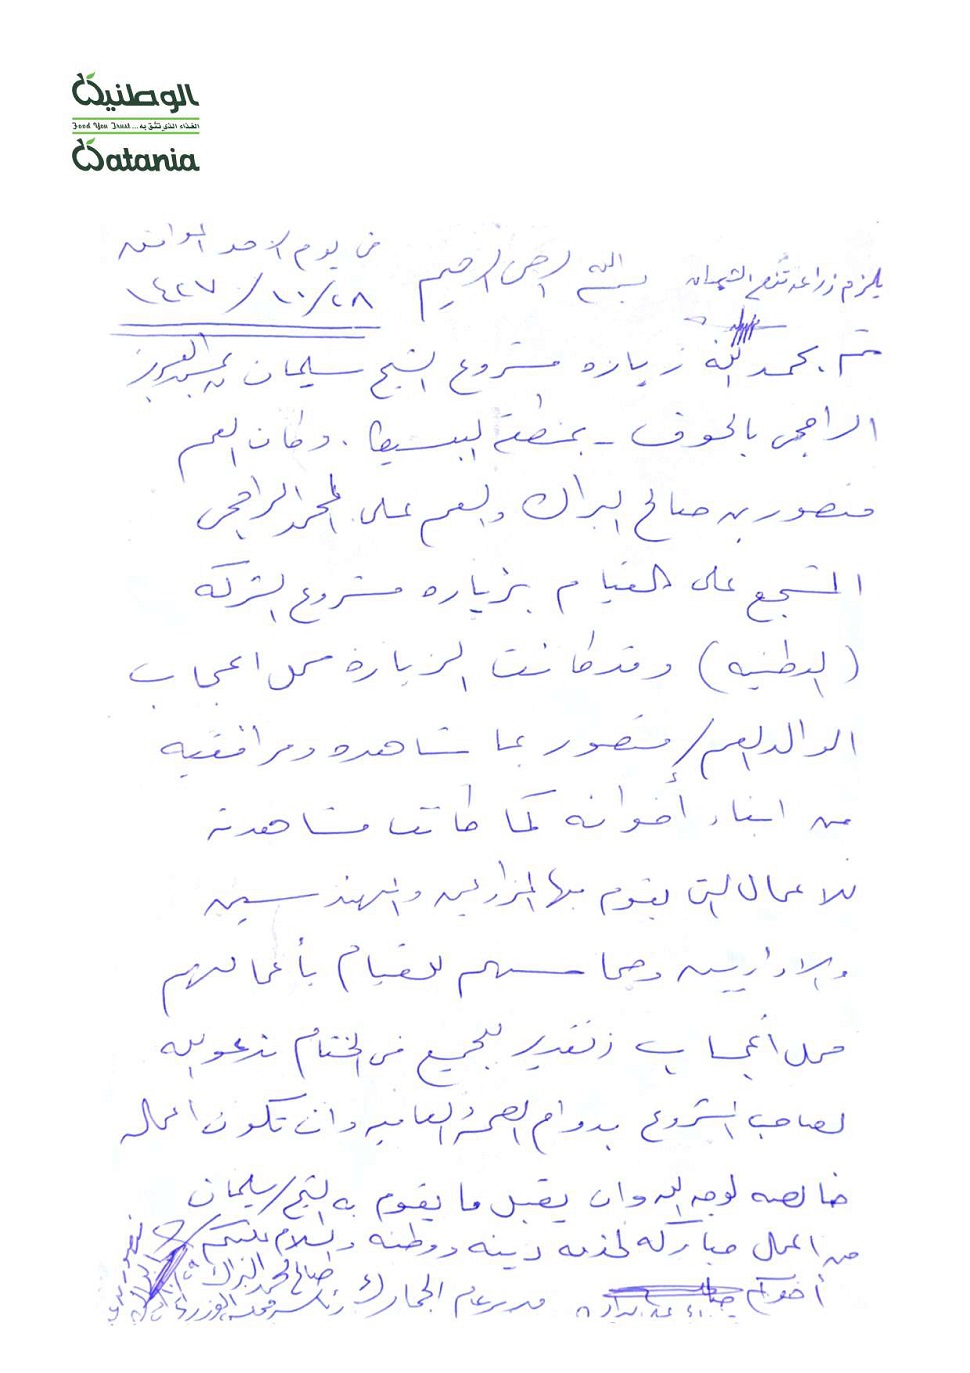 الوطنية
الغذاء الذي تثق به... Food You Trust
Watania
في يوم الاحد الموافق
٢٨/١٠/١٤٢٧
بسم الله الرحمن الرحيم
يلزم زراعة
تم بحمد الله زيارة مشروع الشيخ سليمان بن عبدالعزيز
الراجحي بالجوف - بمنطقة البسيطا. وكان العم
منصور بن صالح البراك والعم علي المحمد الراجحي
المشجع على القيام بزيارة مشروع الشركه
(الوطنيه) وقد كانت الزيارة محل اعجاب
الوالد العم/ منصور بما شاهده ومرافقيه
من ابناء أخوانه كما كانت مشاهدته
للاعمال التي يقوم بها المزارعين والمهندسين
والاداريين وحماسهم للقيام بأعمالهم
محل أعجاب وتقدير للجميع في الختام ندعو الله
لصاحب المشروع بدوام الصحة والعافيه وان تكون اعماله
خالصه لوجه الله وان يقبل ما يقوم به الشيخ/ سليمان
من اعمال مباركه لخدمة دينه ووطنه والسلام عليكم
أخوكم
صالح المحمد البراك
مدير عام الجمارك